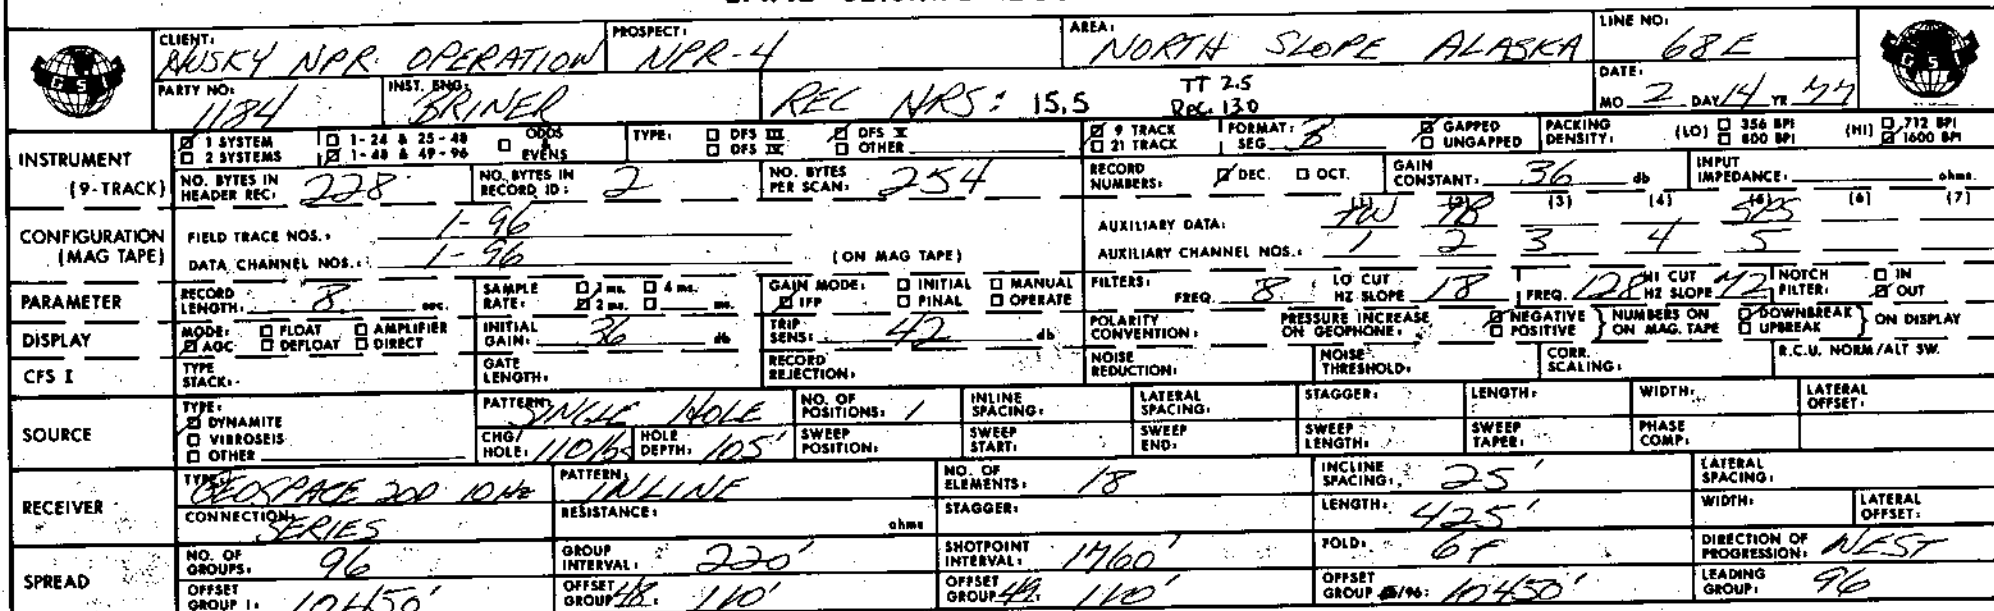 CLIENT: HUSKY NPR OPERATION PROSPECT: NPR-4 AREA: NORTH SLOPE ALASKA LINE NO: 68E
GSI PARTY NO: 1184 INST. ENG: BRINER REC NRS: 15.5 TT 2.5 Rec. 13.0 DATE: MO 2 DAY 14 YR 77 GSI
INSTRUMENT (9-TRACK) ☑ 1 SYSTEM ☐ 1-24 & 25-48 ☐ ODDS & EVENS TYPE: ☐ DFS III ☑ DFS V ☑ 9 TRACK FORMAT: SEG B ☑ GAPPED PACKING DENSITY: (LO) ☐ 356 BPI (HI) ☐ 712 BPI
☐ 2 SYSTEMS ☑ 1-48 & 49-96 ☐ DFS IV ☐ OTHER ☐ 21 TRACK ☐ UNGAPPED ☐ 800 BPI ☑ 1600 BPI
NO. BYTES IN HEADER REC: 228 NO. BYTES IN RECORD ID: 2 NO. BYTES PER SCAN: 254 RECORD NUMBERS: ☑ DEC. ☐ OCT. GAIN CONSTANT: 36 db INPUT IMPEDANCE: ohms.
CONFIGURATION (MAG TAPE) FIELD TRACE NOS.: 1-96 AUXILIARY DATA: (1) TW (2) TB (3) (4) (5) SPS (6) (7)
DATA CHANNEL NOS.: 1-96 (ON MAG TAPE) AUXILIARY CHANNEL NOS.: 1 2 3 4 5
PARAMETER RECORD LENGTH: 8 sec. SAMPLE RATE: ☐ 1 ms. ☐ 4 ms. ☑ 2 ms. ☐ ms. GAIN MODE: ☐ INITIAL ☐ MANUAL ☑ IFP ☐ FINAL ☐ OPERATE FILTERS: FREQ. 8 LO CUT HZ SLOPE 18 FREQ. 128 HI CUT HZ SLOPE 72 NOTCH FILTER: ☐ IN ☑ OUT
DISPLAY MODE: ☐ FLOAT ☐ AMPLIFIER ☑ AGC ☐ DEFLOAT ☐ DIRECT INITIAL GAIN: 36 db TRIP SENS: 42 db POLARITY CONVENTION: PRESSURE INCREASE ON GEOPHONE: ☑ NEGATIVE ☐ POSITIVE } NUMBERS ON ON MAG. TAPE ☑ DOWNBREAK ☐ UPBREAK } ON DISPLAY
CFS I TYPE STACK: GATE LENGTH: RECORD REJECTION: NOISE REDUCTION: NOISE THRESHOLD: CORR. SCALING: R.C.U. NORM/ALT SW.
SOURCE TYPE: ☑ DYNAMITE ☐ VIBROSEIS ☐ OTHER PATTERN: SINGLE HOLE NO. OF POSITIONS: 1 INLINE SPACING: LATERAL SPACING: STAGGER: LENGTH: WIDTH: LATERAL OFFSET:
CHG/HOLE: 110 lbs HOLE DEPTH: 105' SWEEP POSITION: SWEEP START: SWEEP END: SWEEP LENGTH: SWEEP TAPER: PHASE COMP:
RECEIVER TYPE: GEOSPACE 20D 10Hz PATTERN: INLINE NO. OF ELEMENTS: 18 INCLINE SPACING: 25' LATERAL SPACING:
CONNECTION: SERIES RESISTANCE: ohms STAGGER: LENGTH: 425' WIDTH: LATERAL OFFSET:
SPREAD NO. OF GROUPS: 96 GROUP INTERVAL: 220' SHOTPOINT INTERVAL: 1760' FOLD: 6F DIRECTION OF PROGRESSION: WEST
OFFSET GROUP 1: 10450' OFFSET GROUP 48: 110' OFFSET GROUP 49: 110' OFFSET GROUP /96: 10450' LEADING GROUP: 96